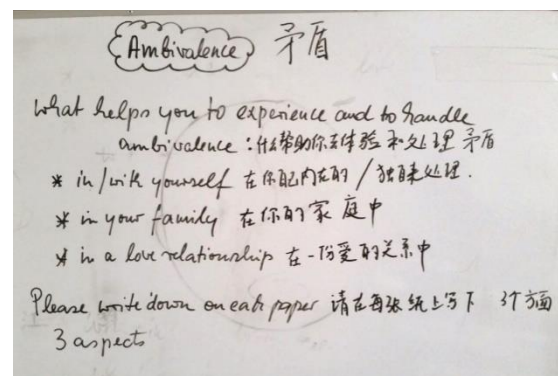 Ambivalence 矛盾
what helps you to experience and to handle
ambivalence : 什么帮助你去体验和处理矛盾
* in/with yourself 在你自己内在的 / 独自来处理.
* in your family 在你的家庭中
* in a love relationship 在一份爱的关系中
Please write down on each paper 请在每张纸上写下 3个方面
3 aspects